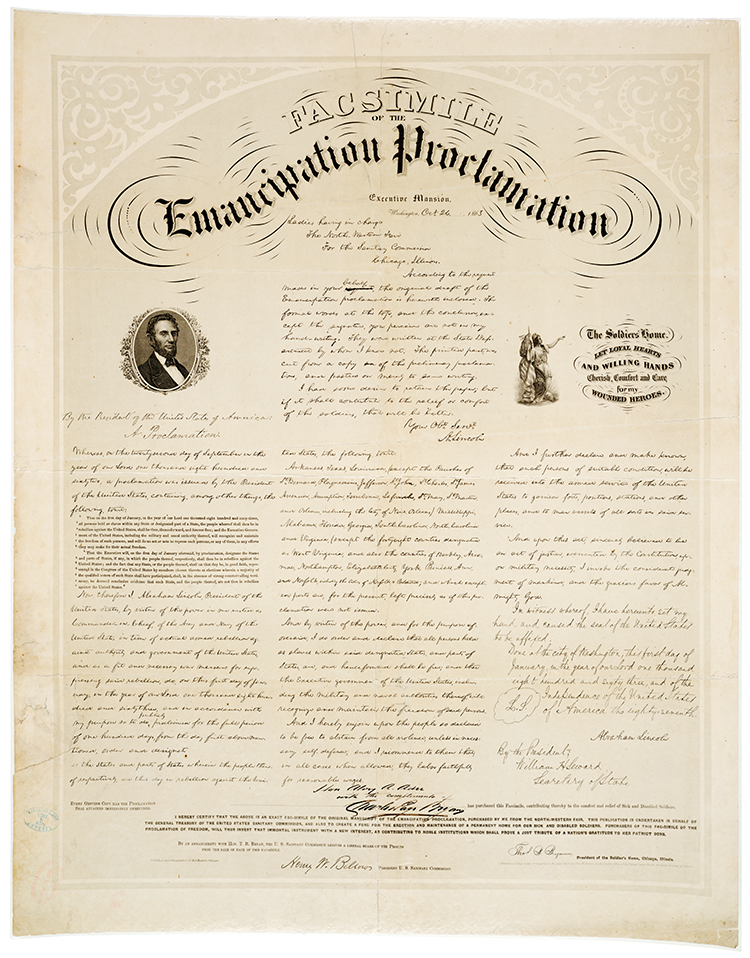 FACSIMILE
OF THE
Emancipation Proclamation
Executive Mansion,
Washington, Oct 26, 1863
Ladies having in charge
The North Western Fair
For the Sanitary Commission
Chicago, Illinois.
According to the request
made in your behalf, the original draft of the
Emancipation proclamation is herewith inclosed. The
formal words at the top, and the conclusion, ex-
cept the signature, you perceive are not in my
hand-writing. They were written at the State Dep-
artment by whom I know not. The printed part was
cut from a copy of the preliminary proclama-
tion, and pasted on merely to save writing.
I have some desire to retain the paper; but
if it shall contribute to the relief or comfort
of the soldiers, that will be better.
Your Obt. Servt.
A. Lincoln
The Soldiers Home.
LET LOYAL HEARTS
AND WILLING HANDS
Cherish, Comfort and Care
for my
WOUNDED HEROES.
By the President of the United States of America:
A Proclamation.
Whereas, on the twenty-second day of September, in the
year of our Lord one thousand eight hundred and
sixty-two, a proclamation was issued by the President
of the United States, containing, among other things, the
following, to wit:
"That on the first day of January, in the year of our Lord one thousand eight hundred and sixty-three,
all persons held as slaves within any State or designated part of a State, the people whereof shall then be in
rebellion against the United States, shall be then, thenceforward, and forever free; and the Executive Govern-
ment of the United States, including the military and naval authority thereof, will recognize and maintain
the freedom of such persons, and will do no act or acts to repress such persons, or any of them, in any efforts
they may make for their actual freedom.
"That the Executive will, on the first day of January aforesaid, by proclamation, designate the States
and parts of States, if any, in which the people thereof, respectively, shall then be in rebellion against the
United States; and the fact that any State, or the people thereof, shall on that day be, in good faith, repre-
sented in the Congress of the United States by members chosen thereto at elections wherein a majority of
the qualified voters of such State shall have participated, shall, in the absence of strong countervailing testi-
mony, be deemed conclusive evidence that such State, and the people thereof, are not then in rebellion
against the United States."
Now, therefore I, Abraham Lincoln, President of the
United States, by virtue of the power in me vested as
Commander-in-Chief, of the Army and Navy of the
United States in time of actual armed rebellion a-
gainst authority and government of the United States,
and as a fit and necessary war measure for sup-
pressing said rebellion, do, on this first day of Jan-
uary, in the year of our Lord one thousand eight hun-
dred and sixty three, and in accordance with
my purpose so to do, publicly proclaimed for the full period
of one hundred days, from the day first above men-
tioned, order and designate
as the States and parts of States wherein the people there-
of respectively, are this day in rebellion against the Uni-
ted States, the following, to wit:
Arkansas, Texas, Louisiana, (except the Parishes of
St. Bernard, Plaquemines, Jefferson, St. John, St. Charles, St. James
Ascension, Assumption, Terrebonne, Lafourche, St. Mary, St. Martin,
and Orleans, including the City of New Orleans) Mississippi,
Alabama, Florida, Georgia, South Carolina, North Carolina
and Virginia, (except the fortyeight counties designated
as West Virginia, and also the counties of Berkley, Acco-
mac, Northampton, Elizabeth City, York, Princess Ann,
and Norfolk, including the cities of Norfolk & Portsmouth); and which except-
ed parts are, for the present, left precisely as if this pro-
clamation were not issued.
And by virtue of the power, and for the purpose a-
foresaid, I do order and declare that all persons held
as slaves within said designated States, and parts of
States, are, and henceforward shall be free; and that
the Executive government of the United States, inclu-
ding the military and naval authorities thereof, will
recognize and maintain the freedom of said persons.
And I hereby enjoin upon the people so declared
to be free to abstain from all violence, unless in neces-
sary self-defence; and I recommend to them that,
in all cases when allowed, they labor faithfully
for reasonable wages.
And I further declare and make known,
that such persons of suitable condition, will be
received into the armed service of the United
States to garrison forts, positions, stations, and other
places, and to man vessels of all sorts in said ser-
vice.
And upon this act, sincerely believed to be
an act of justice, warranted by the Constitution, up-
on military necessity, I invoke the considerate judg-
ment of mankind, and the gracious favor of Al-
mighty God.
In witness whereof, I have hereunto set my
hand and caused the seal of the United States
to be affixed.
Done at the city of Washington, this first day of
January, in the year of our Lord one thousand
eight hundred and sixty three, and of the
L.S. Independence of the United States
of America the eighty-seventh.
Abraham Lincoln
By the President;
William H. Seward
Secretary of State
Hon
with the compliments of
has purchased this Facsimile, contributing thereby to the comfort and relief of Sick and Disabled Soldiers.
I HEREBY CERTIFY THAT THE ABOVE IS AN EXACT FAC-SIMILE OF THE ORIGINAL MANUSCRIPT OF THE EMANCIPATION PROCLAMATION, PURCHASED BY ME FROM THE NORTH-WESTERN FAIR. THIS PUBLICATION IS UNDERTAKEN IN BEHALF OF
THE GENERAL TREASURY OF THE UNITED STATES SANITARY COMMISSION, AND ALSO TO CREATE A FUND FOR THE ERECTION AND MAINTENANCE OF A PERMANENT HOME FOR OUR SICK AND DISABLED SOLDIERS. PURCHASERS OF THIS FAC-SIMILE OF THE
PROCLAMATION OF FREEDOM, WILL THUS INVEST THAT IMMORTAL INSTRUMENT WITH A NEW INTEREST, AS CONTRIBUTING TO NOBLE INSTITUTIONS WHICH SHALL PROVE A JUST TRIBUTE OF A NATION'S GRATITUDE TO HER PATRIOT SONS.
BY AN ARRANGEMENT WITH HON. T. B. BRYAN, THE U. S. SANITARY COMMISSION DERIVES A LIBERAL SHARE OF THE PROFITS
FROM THE SALE OF
Thos. B. Bryan
President of the Soldier's Home, Chicago, Illinois.
Henry W. Bellows PRESIDENT U. S. SANITARY COMMISSION